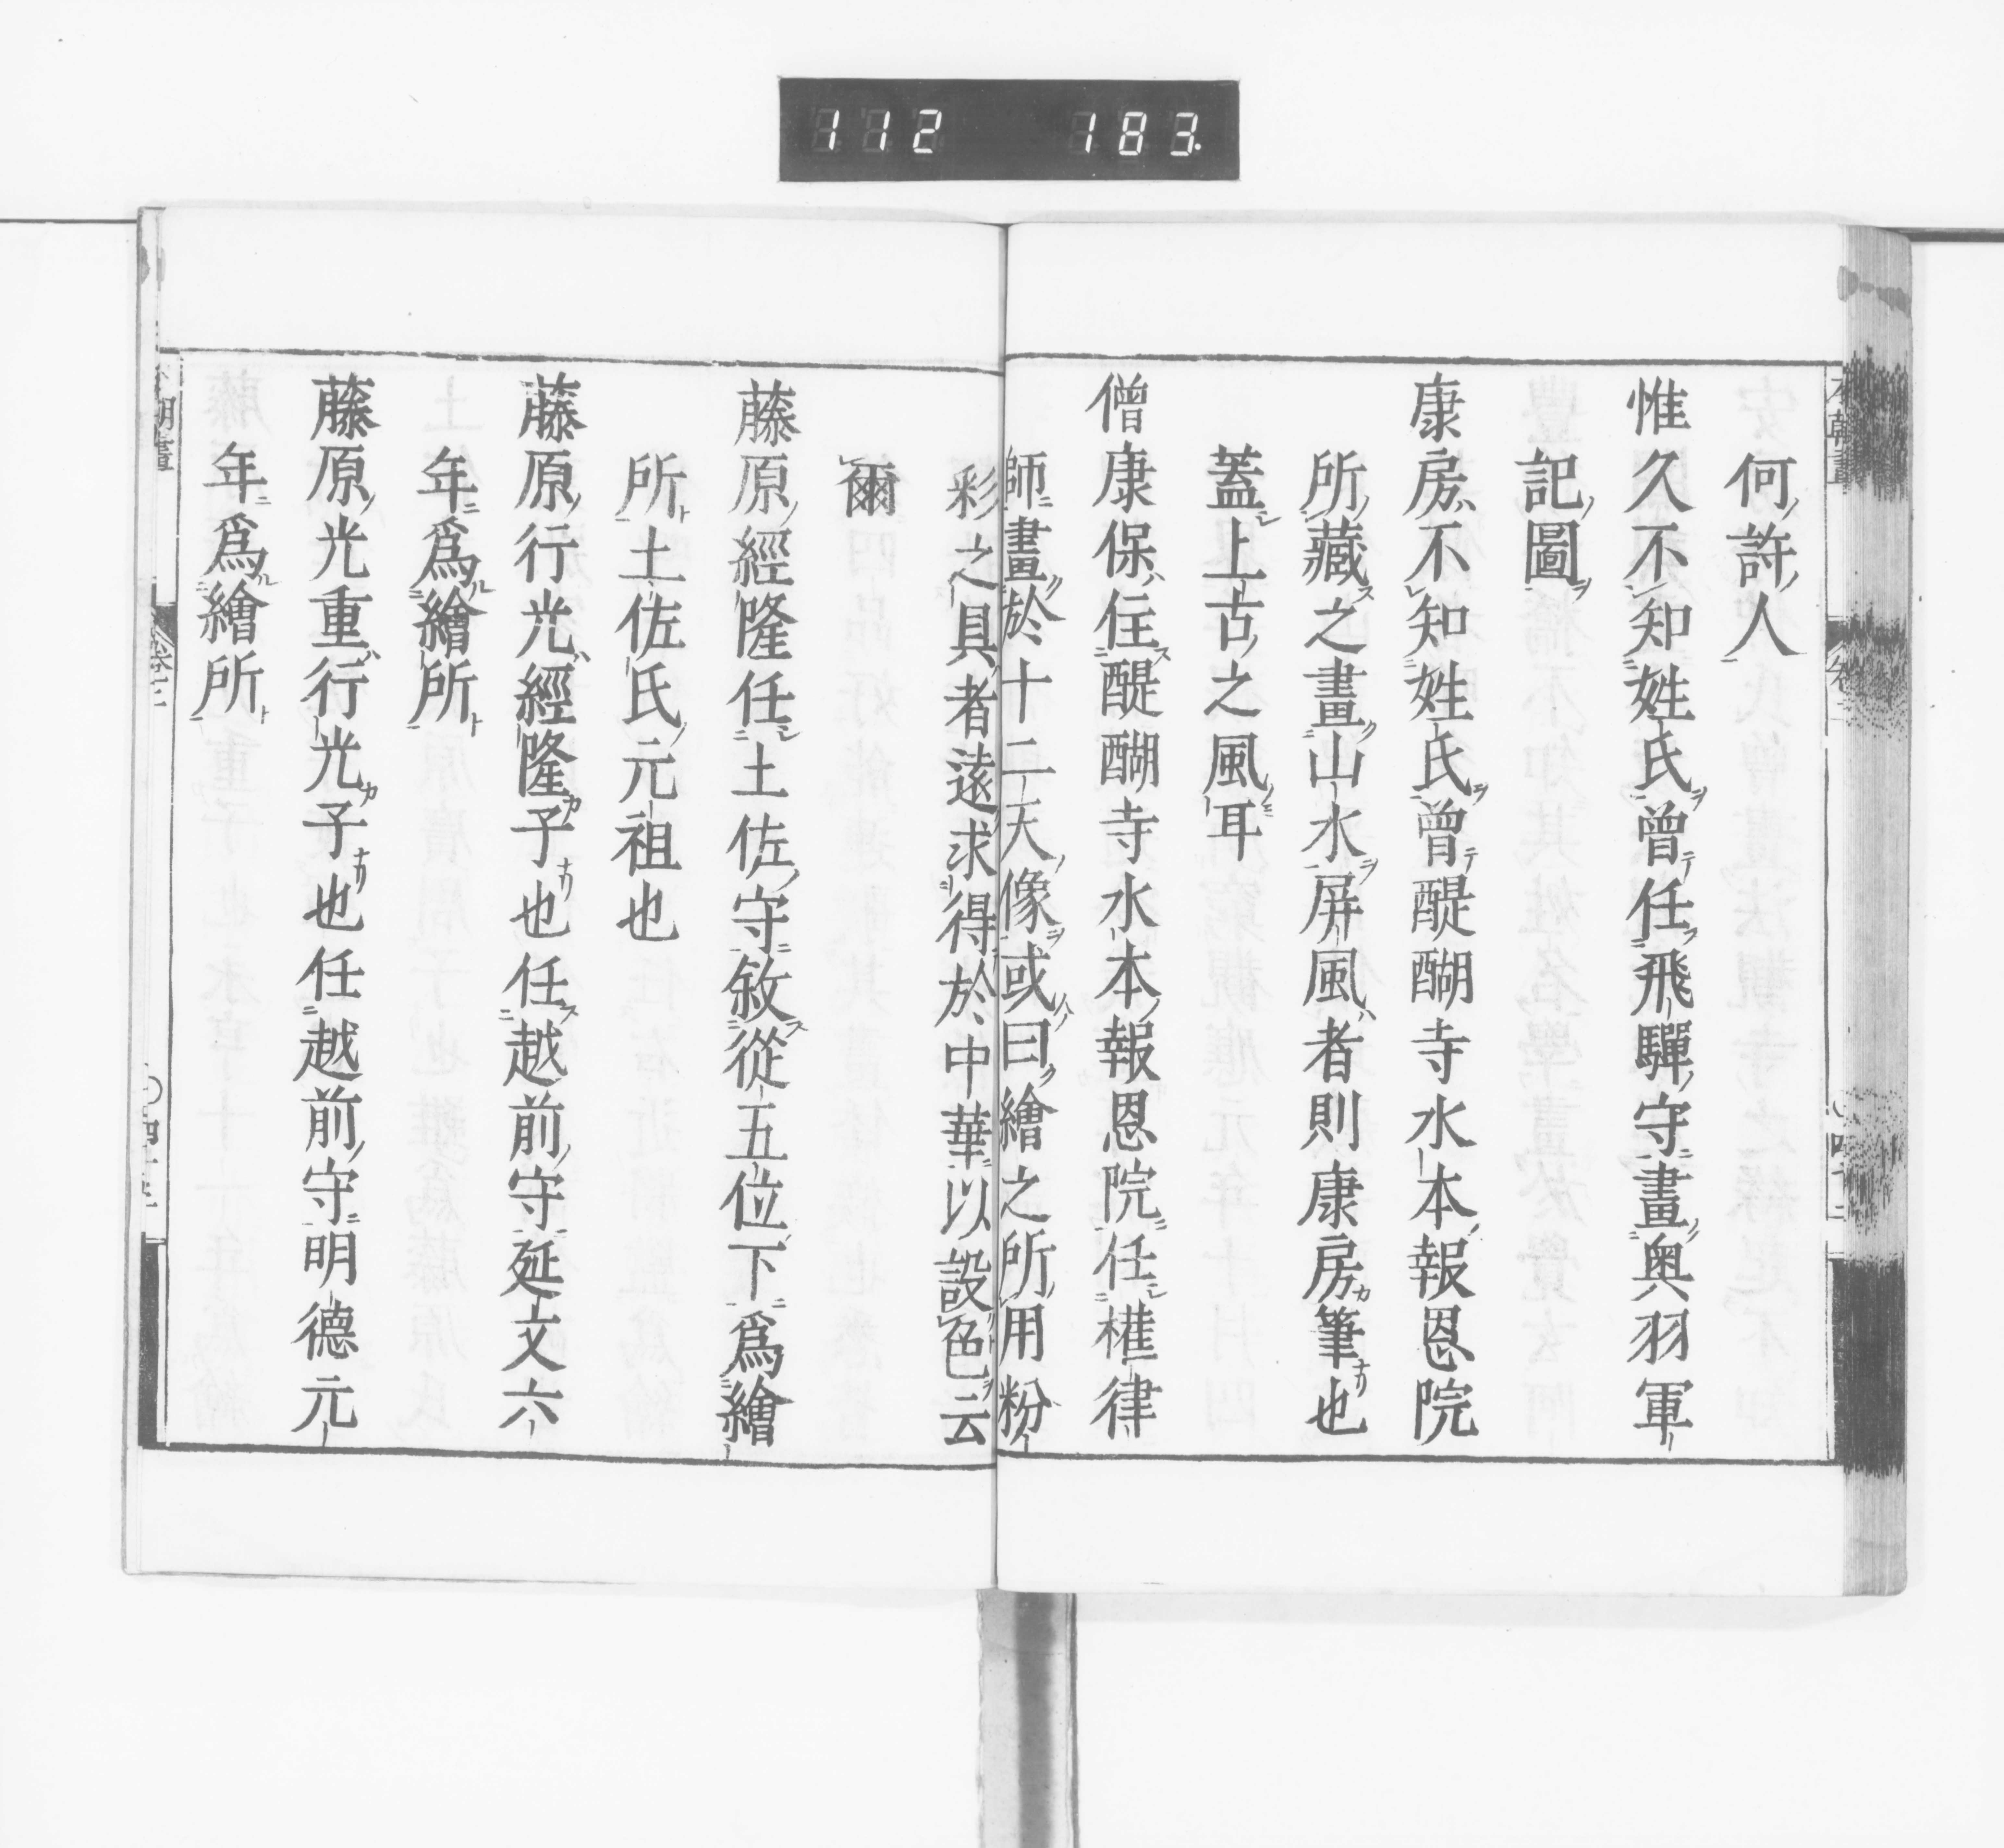 112 183.
何許人
惟久不知姓氏曾任飛驒守畫奥羽軍
記圖
康房不知姓氏曾醍醐寺水本報恩院
所藏之畫山水屏風者則康房筆也
蓋上古之風耳
僧康保住醍醐寺水本報恩院任権律
師畫於十二天像或曰繪之所用粉
彩之具者遠求得於中華以設色云
爾
藤原經隆任土佐守敘從五位下爲繪
所土佐氏元祖也
藤原行光經隆子也任越前守延文六
年爲繪所
藤原光重行光子也任越前守明德元
年爲繪所